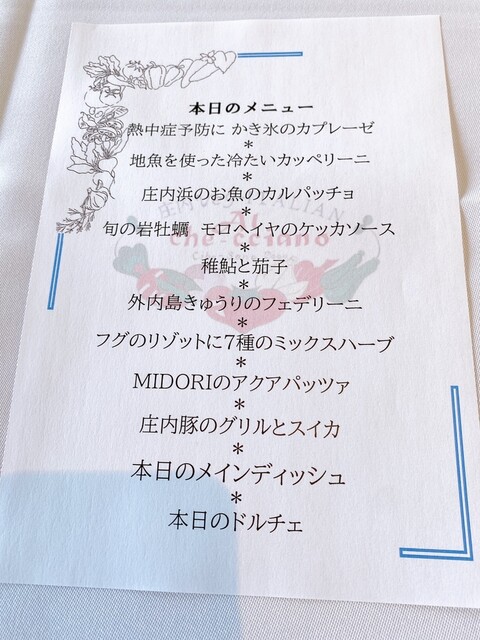 本日のメニュー
熱中症予防に かき氷のカプレーゼ
*
地魚を使った冷たいカッペリーニ
*
庄内浜のお魚のカルパッチョ
*
旬の岩牡蠣 モロヘイヤのケッカソース
*
稚鮎と茄子
*
外内島きゅうりのフェデリーニ
*
フグのリゾットに7種のミックスハーブ
*
MIDORIのアクアパッツァ
*
庄内豚のグリルとスイカ
*
本日のメインディッシュ
*
本日のドルチェ
Al
che-cciano